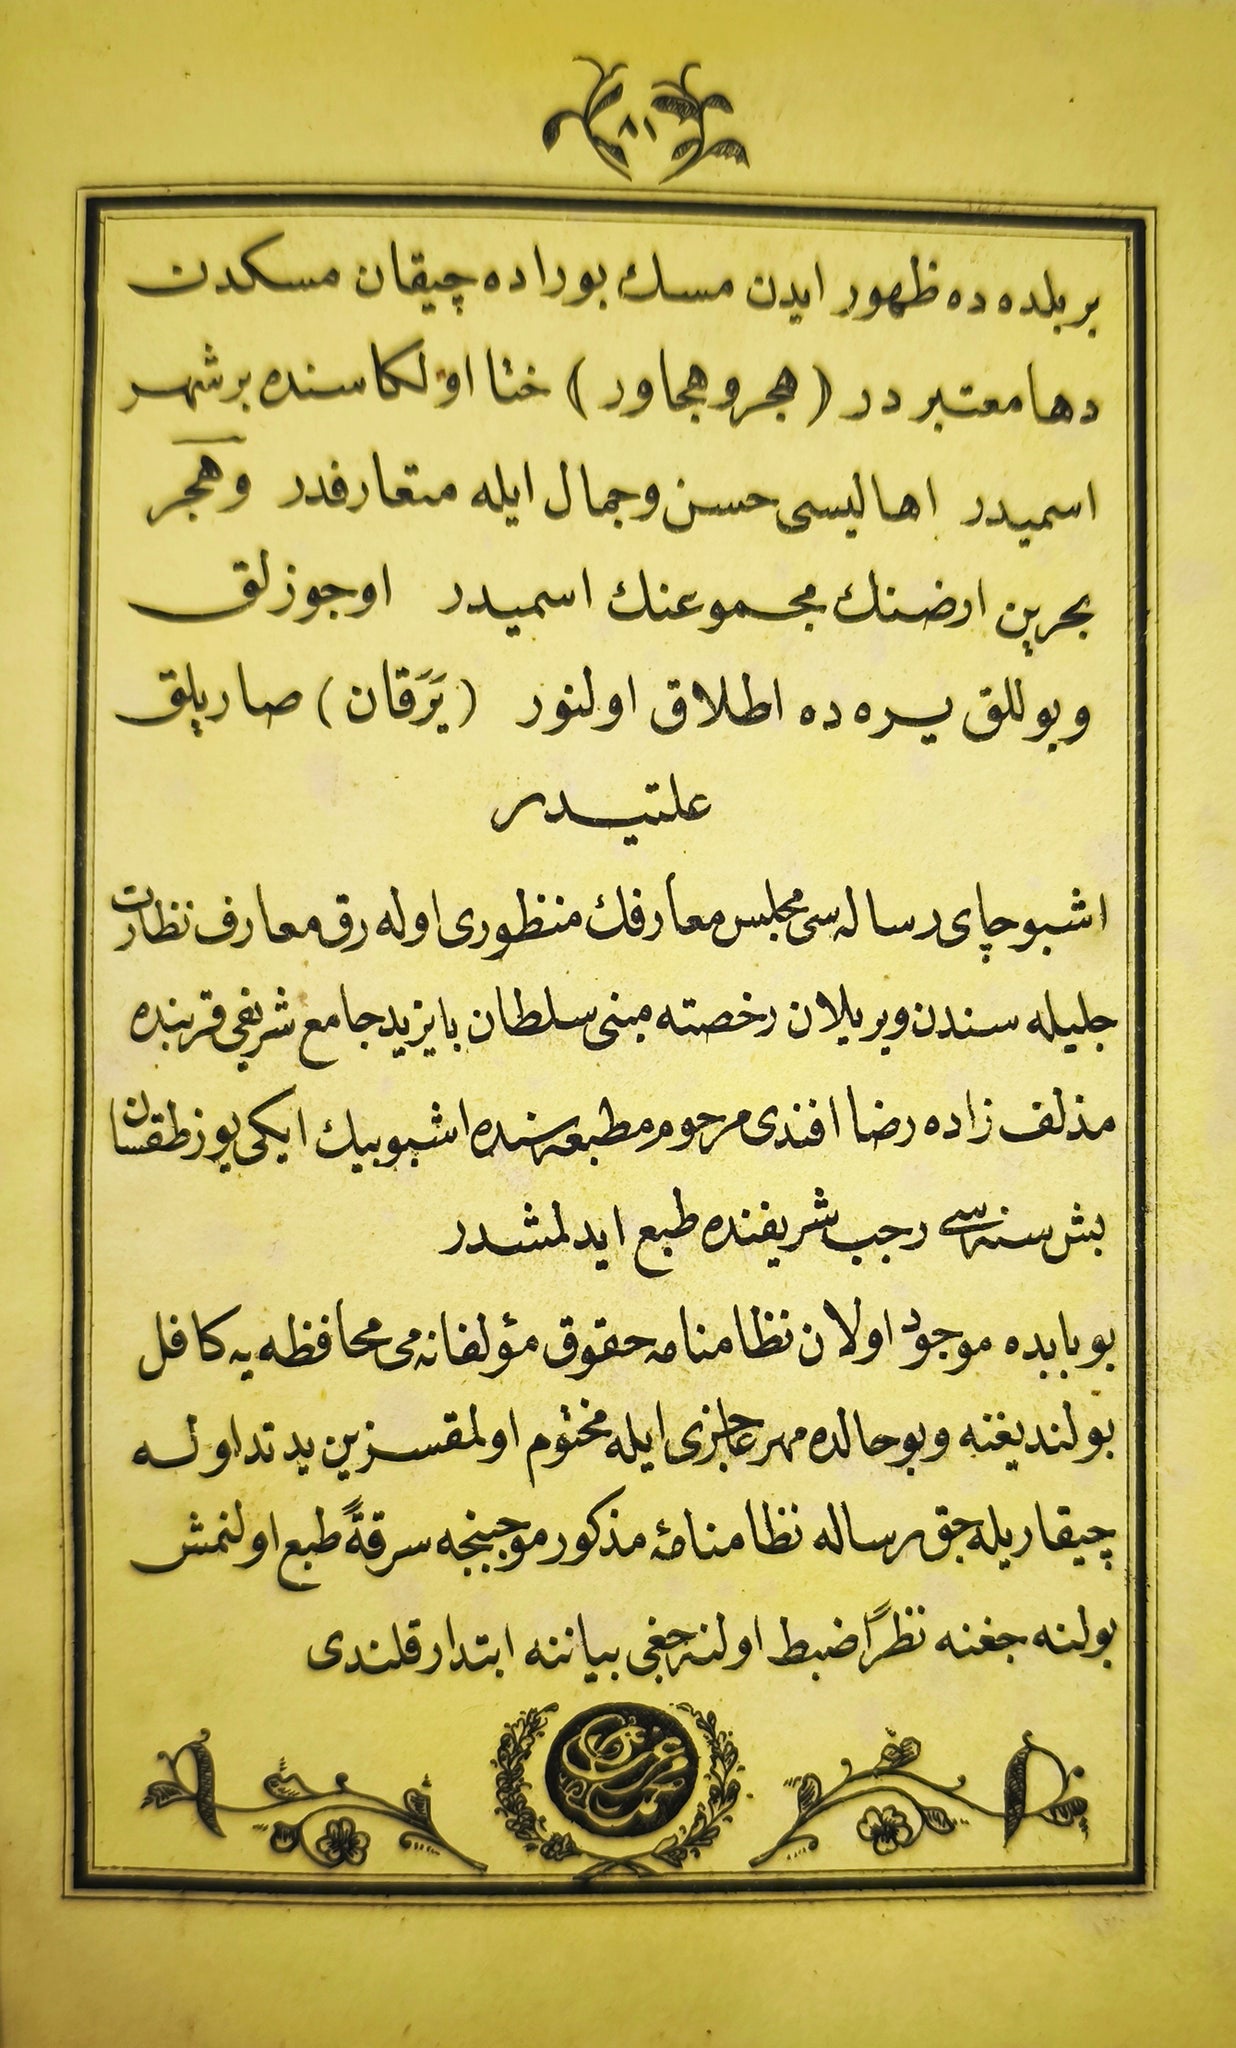 ٨١
بر بلده ده ظهور ایدن مسك بوراده چیقان مسكدن
دها معتبر در (هجر و هجاور) ختا اولكا سنده بر شهر
اسمیدر اهالیسی حسن و جمال ایله متعارفدر وهَجَر
بحرین ارضنك مجموعنك اسمیدر اوجوزلق
وبوللق یره ده اطلاق اولنور (یَرَقان) صاریلق
علتیدر
اشبو چای رساله سی مجلس معارفك منظوری اوله رق معارف نظارت
جلیله سندن ویریلان رخصته مبنی سلطان بایزید جامع شریفی قربنده
مذلف زاده رضا افندی مرحوم مطبعه سنده اشبو بیك ایكی یوز طقسان
بش سنه سی رجب شریفنده طبع ایدلمشدر
بو بابده موجود اولان نظامنامه حقوق مؤلفانه می محافظه یه كافل
بولندیغنه وبو حالده مهر عاجزی ایله مختوم اولمقسزین ید تداوله
چیقاریله جق رساله نظامنامۀ مذكور موجبنجه سرقةً طبع اولنمش
بولنه جغنه نظراً ضبط اولنه جغی بیاننه ابتدار قلندی